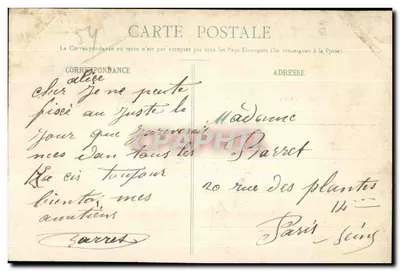 CARTE POSTALE
La Correspondance au recto n'est pas acceptée par tous les Pays Etrangers (Se renseigner à la Poste)
CORRESPONDANCE
ADRESSE
alice
cher Je ne peute
fixé au Juste le
Jour que
mes dan tous les
cis toujour
bientot mes
amitiers
Barret
Madame
Barret
20 rue des plantes
14
Paris
Seine
CPAPHIL